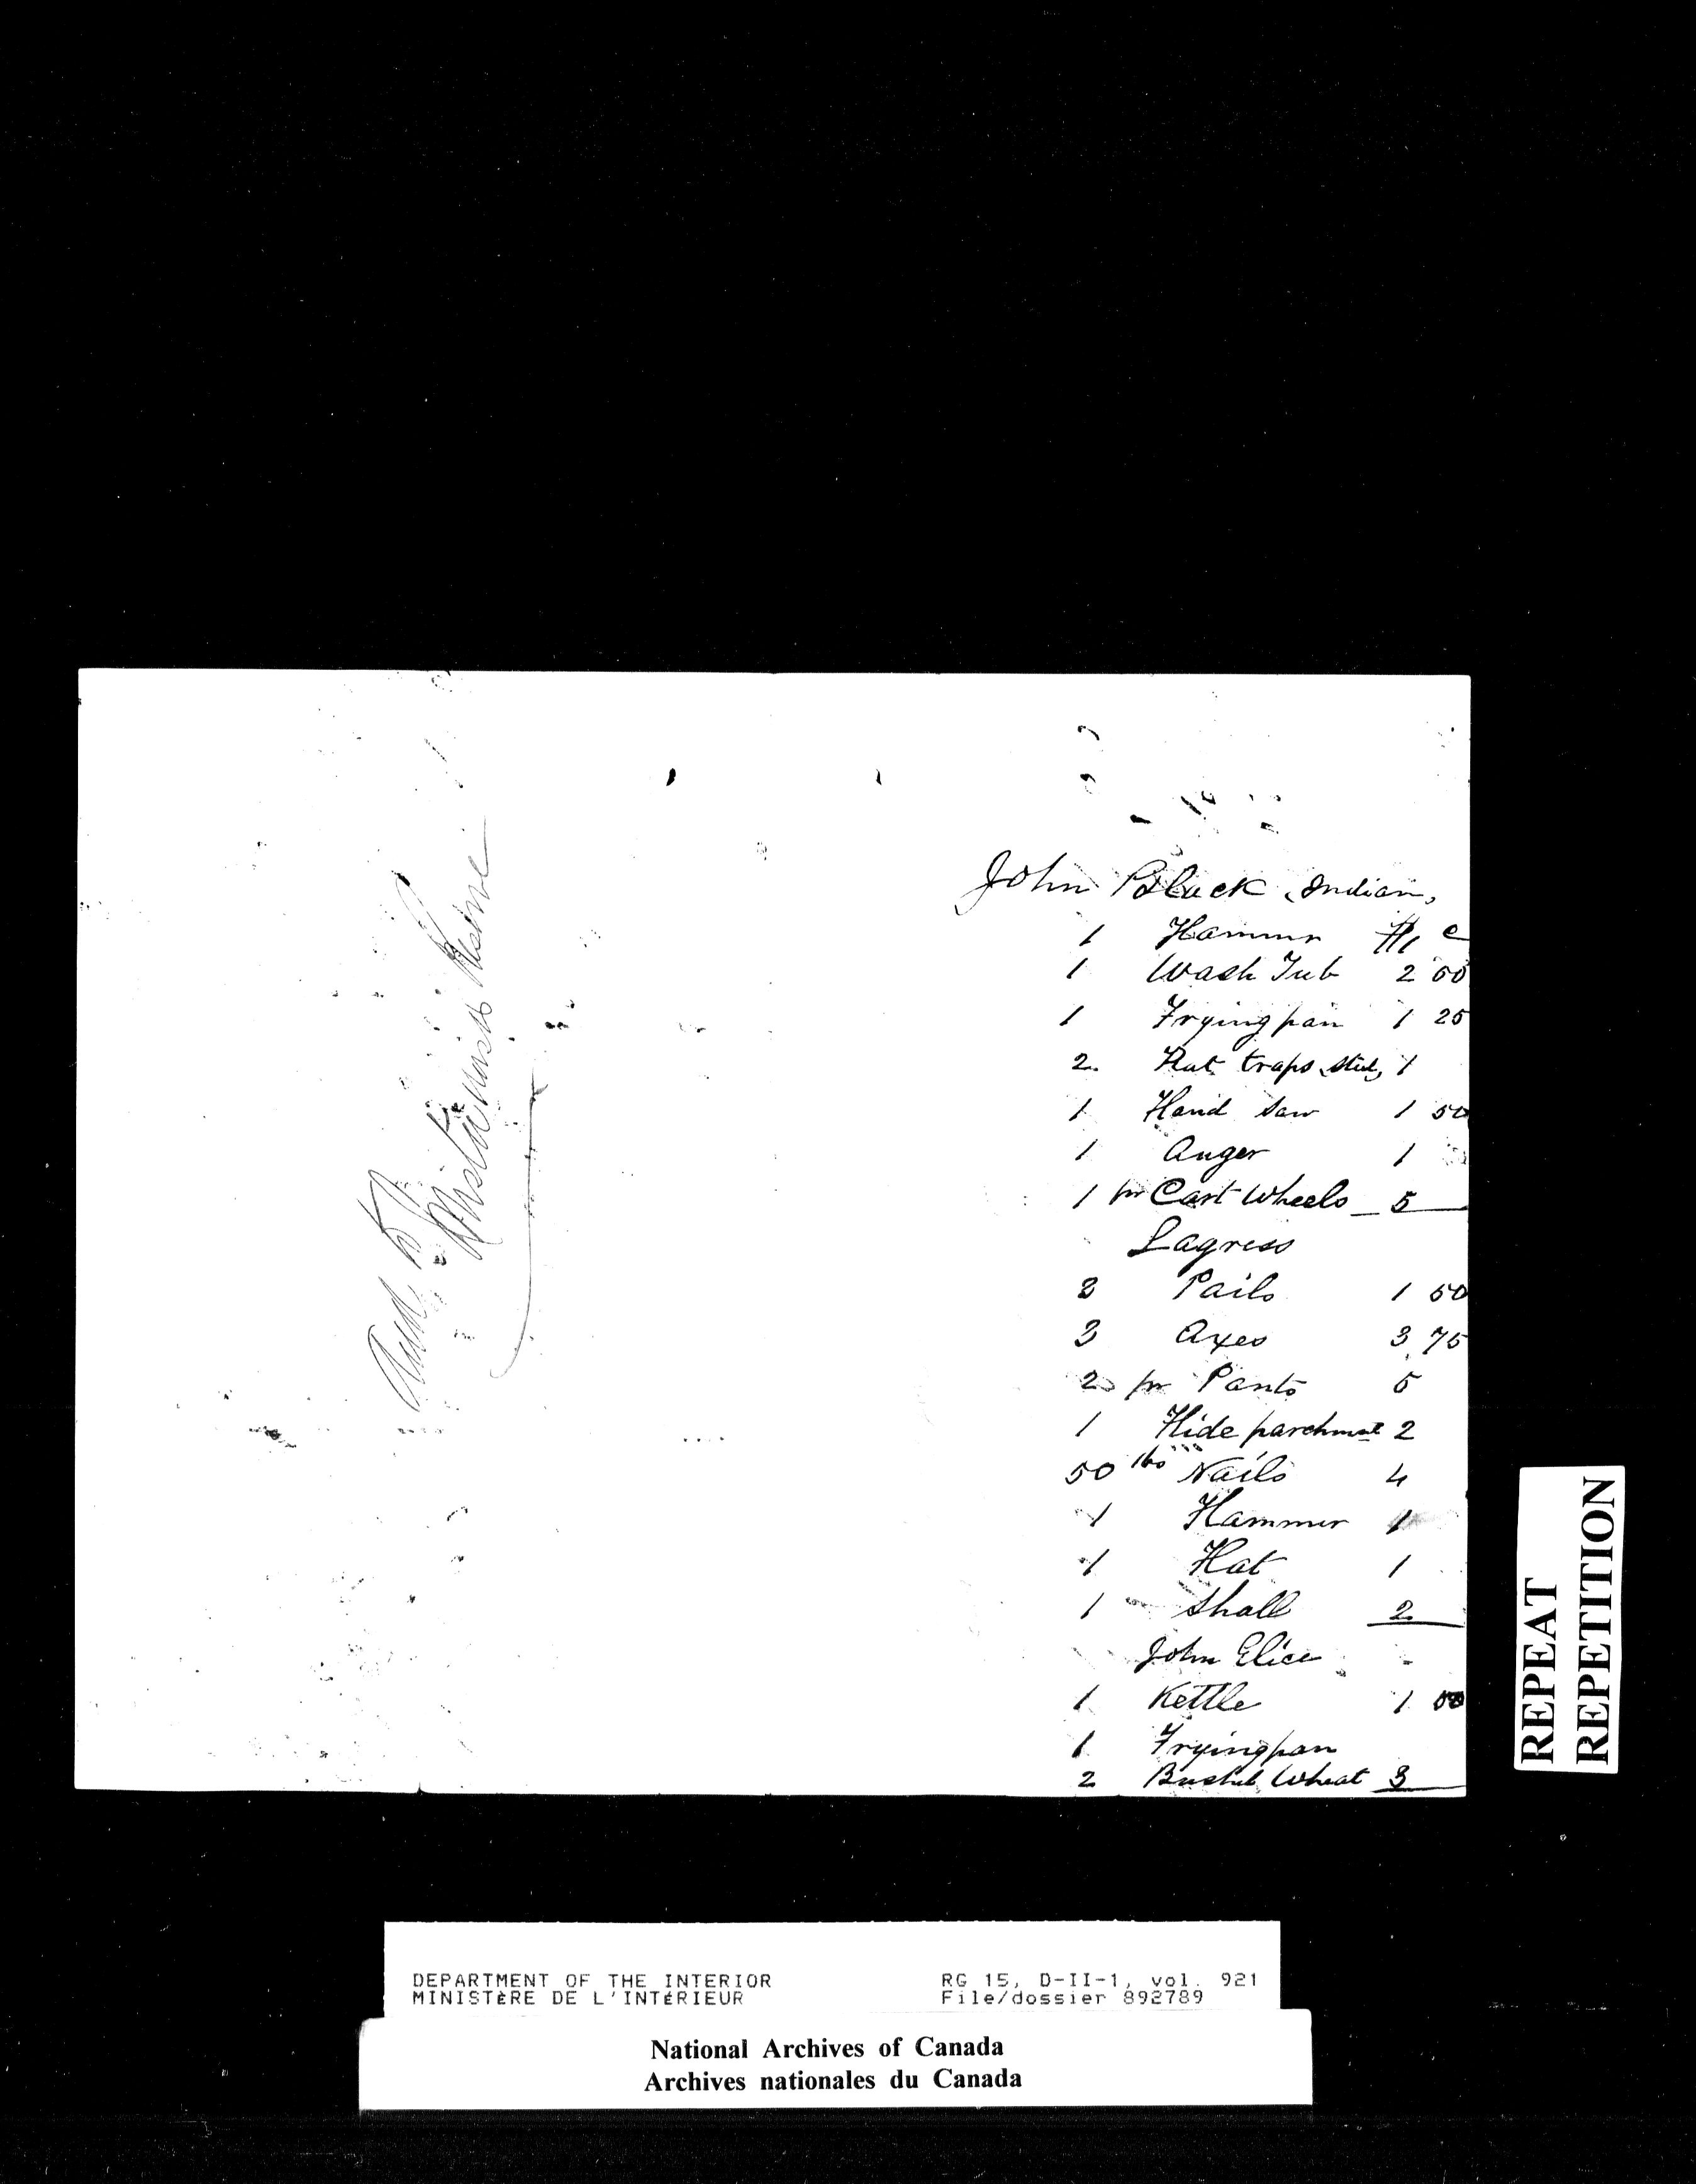 John Black Indian,
1 Hammer $1 c
1 Wash Tub 2 00
1 Frying pan 1 25
2. Rat traps steel, 1
1 Hand Saw 1 50
1 Auger 1
1 pr Cart Wheels 5
Lagress
2 Pails 1 50
3 Axes 3 75
2 pr Pants 5
1 Hide parchmnt 2
50 lbs Nails 4
1 Hammer 1
1 Hat 1
1 Shall 2
John Elice
1 Kettle 1 50
1 Fryingpan
2 Bushel Wheat 3
Reserve
REPEAT
REPETITION
DEPARTMENT OF THE INTERIOR
MINISTÈRE DE L'INTÉRIEUR
RG 15, D-II-1, vol. 921
File/dossier 892789
National Archives of Canada
Archives nationales du Canada